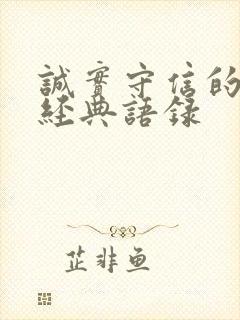 誠實守信的
經典語録
芷非鱼